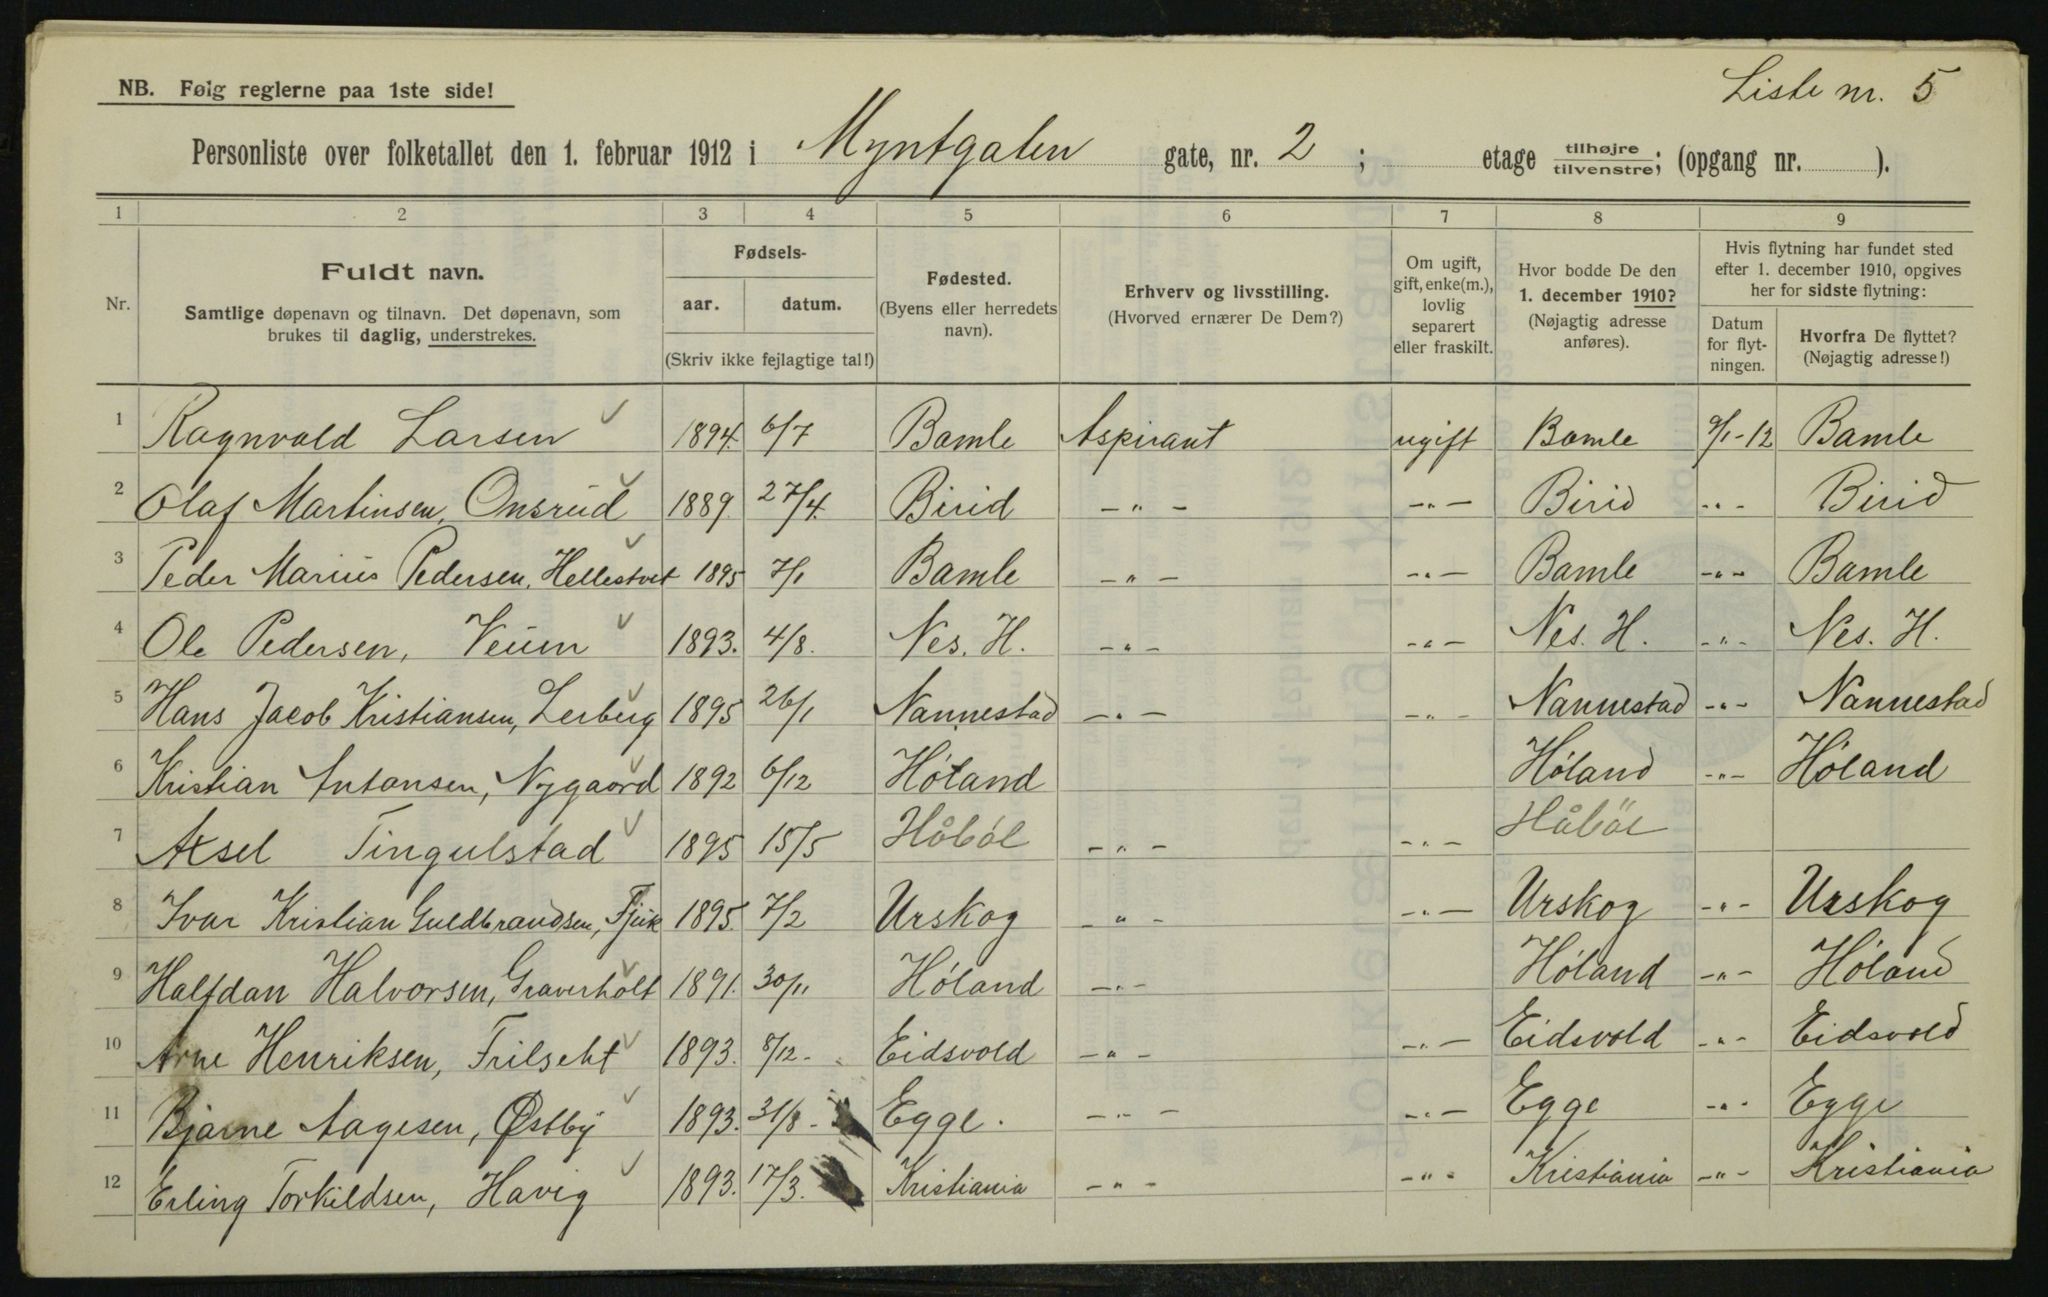 NB. Følg reglerne paa 1ste side!
Liste nr. 5
Personliste over folketallet den 1. februar 1912 i Myntgaten gate, nr. 2 ; etage tilhøjre/tilvenstre; (opgang nr. ).
1 2 3 4 5 6 7 8 9
Nr.
Fuldt navn.
Samtlige døpenavn og tilnavn. Det døpenavn, som
brukes til daglig, understrekes.
Fødsels-
aar. datum.
(Skriv ikke fejlagtige tal!)
Fødested.
(Byens eller herredets
navn).
Erhverv og livsstilling.
(Hvorved ernærer De Dem?)
Om ugift,
gift, enke(m.),
lovlig
separert
eller fraskilt.
Hvor bodde De den
1. december 1910?
(Nøjagtig adresse
anføres).
Hvis flytning har fundet sted
efter 1. december 1910, opgives
her for sidste flytning:
Datum
for flyt-
ningen.
Hvorfra De flyttet?
(Nøjagtig adresse!)
1 Ragnvald Larsen 1894. 6/7 Bamle Aspirant ugift Bamle 9/1-12 Bamle
2 Olaf Martinsen, Onsrud 1889 27/4. Birid -"- -"- Birid -"- Birid
3 Peder Marius Pedersen, Hellestvet 1895 7/1 Bamle -"- -"- Bamle -"- Bamle
4 Ole Pedersen, Veum 1893. 4/8. Nes. H. -"- -"- Nes. H. -"- Nes. H.
5 Hans Jacob Kristiansen, Lerberg 1895 26/1 Nannestad -"- -"- Nannestad -"- Nannestad
6 Kristian Antonsen, Nygaard 1892 6/12 Høland Høland -"- Høland
7 Axel Tingulstad 1895 15/5 Håbøl -"- -"- Håbøl
8 Ivar Kristian Guldbrandsen, Fjuk 1895. 7/2 Urskog -"- -"- Urskog -"- Urskog
9 Halfdan Halvorsen, Graverholt 1891. 30/11 Høland -"- Høland -"- Høland
10 Arne Henriksen, Frilseht 1893. 8/12- Eidsvold -"- -"- Eidsvold -"- Eidsvold
11 Bjarne Aagesen, Østby 1893. 31/8- Egge. -"- -"- Egge -"- Egge
12 Erling Torkildsen, Havig 1893. 17/3. Kristiania -"- -"- Kristiania -"- Kristiania